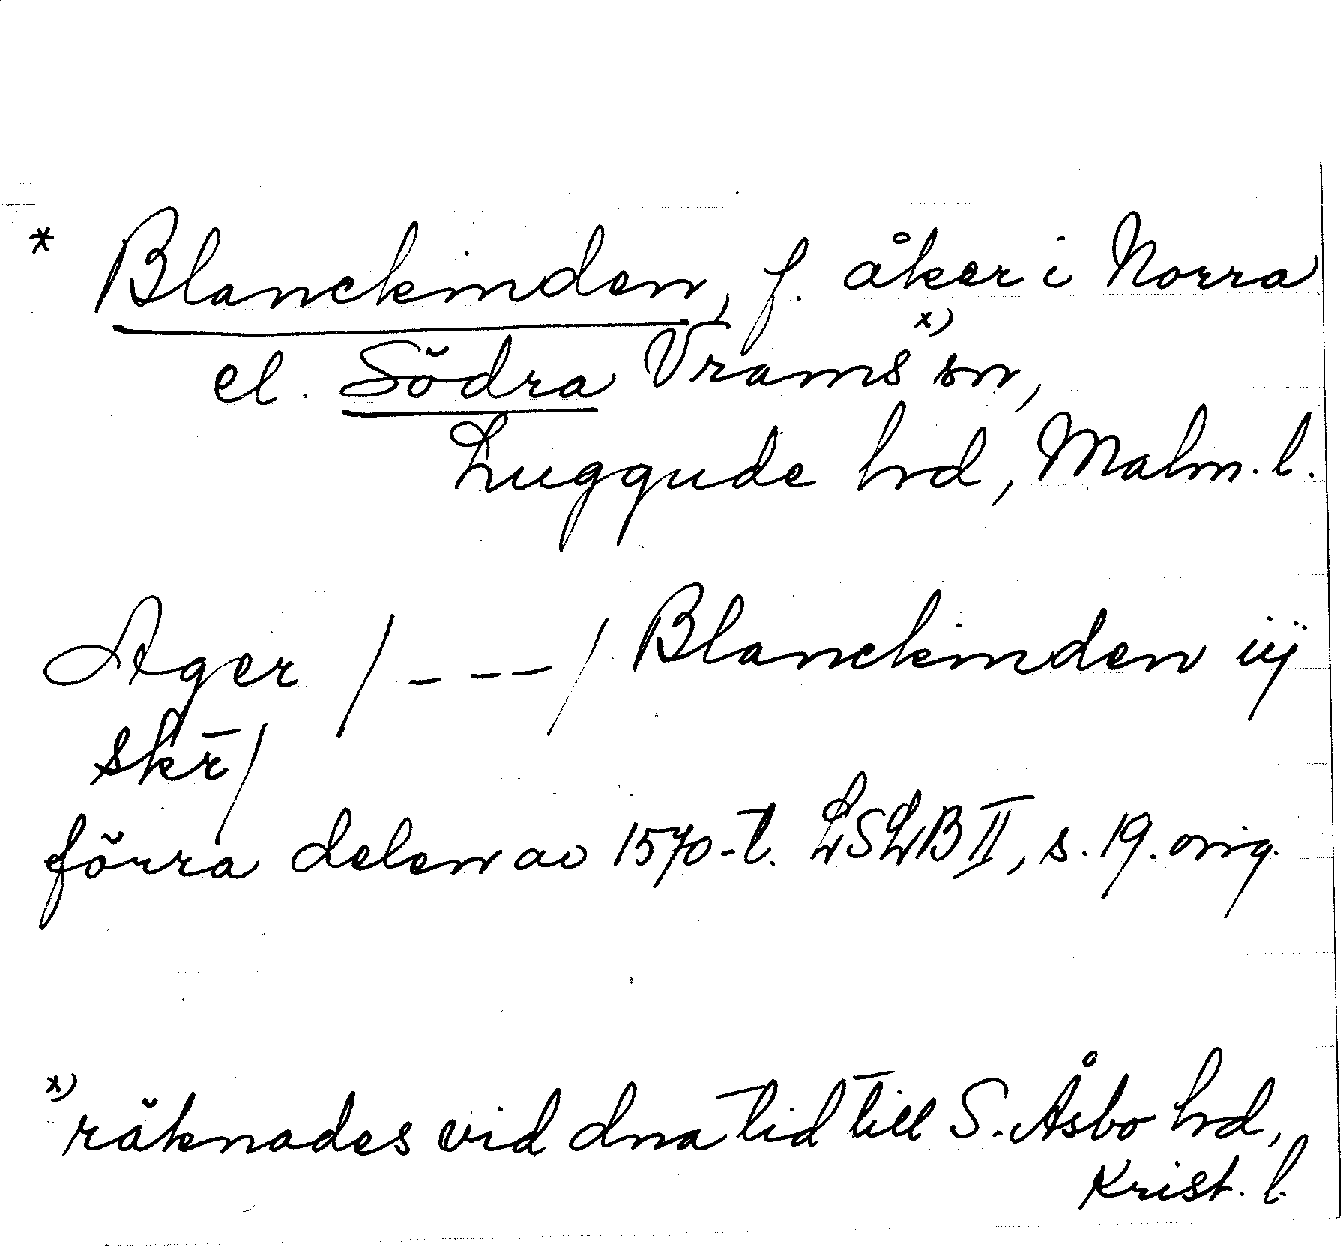 * Blanckinden, f. åker i Norra
el. Södra Vrams x) sn,
Luggude hrd, Malm. l.
Ager / --- / Blanckinden iij
skr̄ /
förra delen av 1570-t. LSLB II, s. 19. orig.
x) räknades vid dna tid till S. Åsbo hrd,
Krist. l.